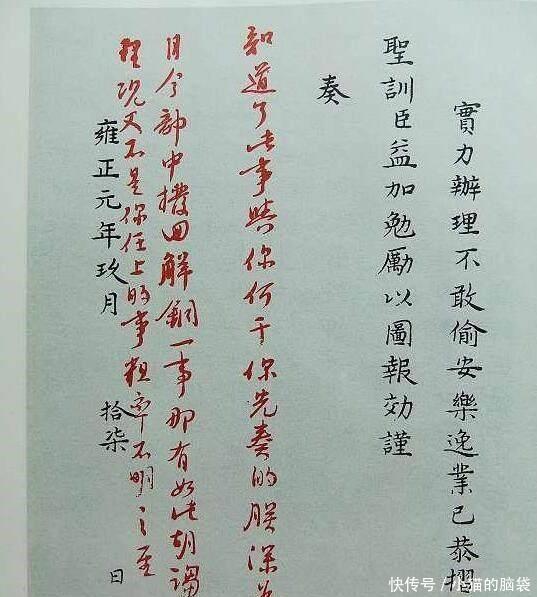 實力辦理不敢偷安樂逸業已恭摺
聖訓臣益加勉勵以圖報効謹
奏
知道了此事與你何干你先奏的朕深
目今部中撥回解銅一事那有如此胡謅
理況又不是你任上的事粗率不明之至
雍正元年玖月 拾柒 日
快传号／小猫的脑袋